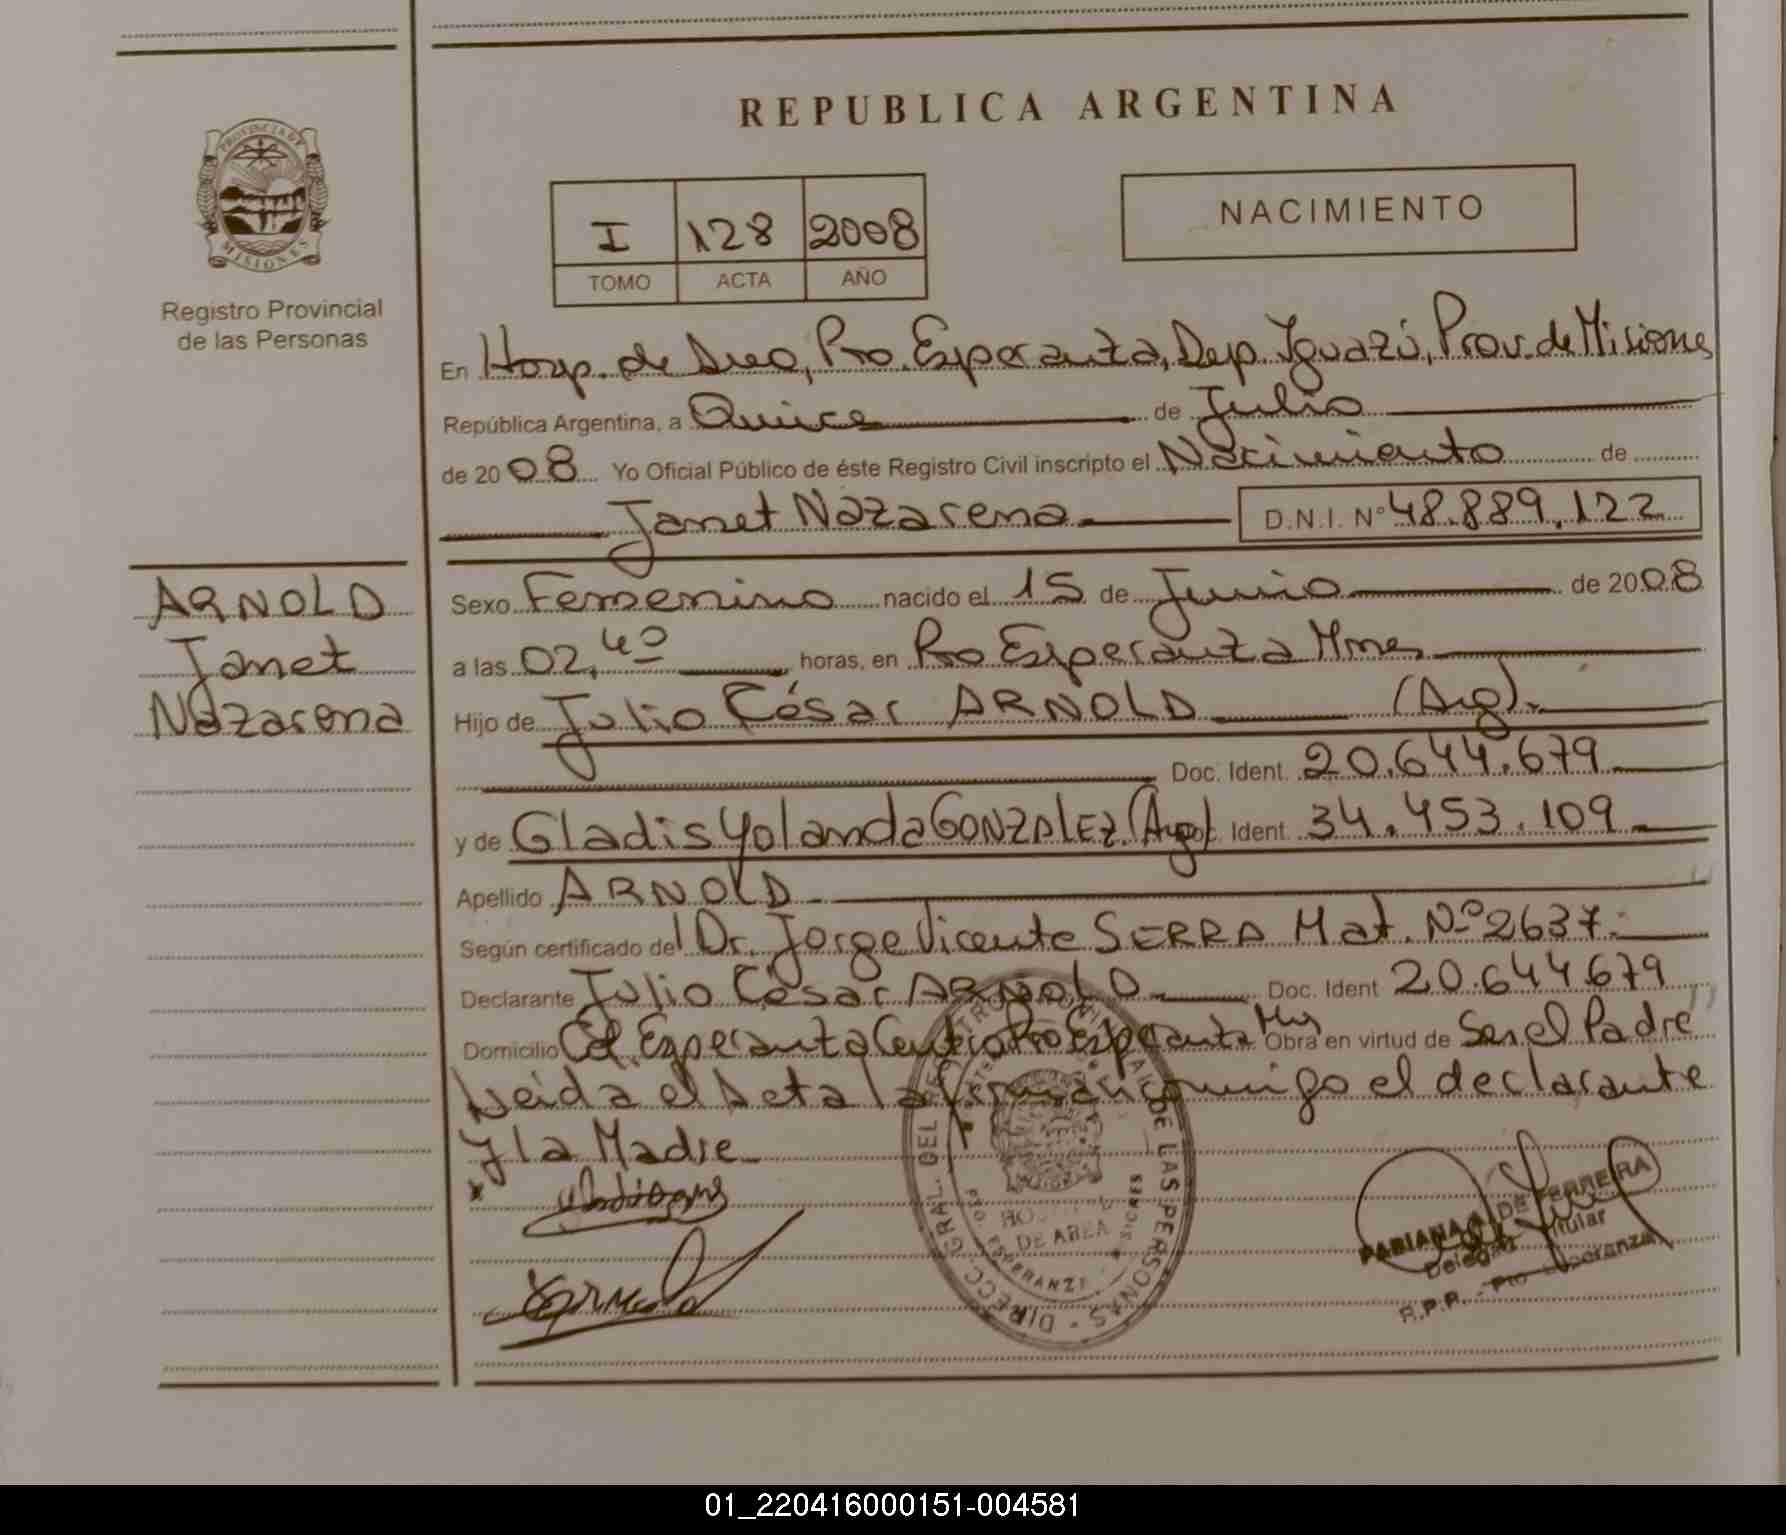 REPUBLICA ARGENTINA
PROVINCIA DE
MISIONES
Registro Provincial
de las Personas
I 128 2008
TOMO ACTA AÑO
NACIMIENTO
En Hosp. de Area, Pto. Esperanza, Dep. Iguazú, Prov. de Misiones
República Argentina, a Quince de Julio
de 2008 Yo Oficial Público de éste Registro Civil inscripto el Nacimiento de
Janet Nazarena D.N.I. Nº 48.889.122
ARNOLD
Janet
Nazarena
Sexo Femenino nacido el 15 de Junio de 2008
a las 02,40 horas, en Pto Esperanza Mnes
Hijo de Julio César ARNOLD (Arg).
Doc. Ident. 20.644.679
y de Gladis Yolanda GONZALEZ. (Arg) Doc. Ident. 34.453.109
Apellido ARNOLD
Según certificado del Dr. Jorge Vicente SERRA Mat. Nº 2637.
Declarante Julio César ARNOLD Doc. Ident 20.644.679
Domicilio Esperanza Centro Pto Esperanza Mns Obra en virtud de Ser el Padre
Leida el Acta la firman conmigo el declarante
Y la Madre
DIRECC. GRAL. DEL REGISTRO DE LAS PERSONAS
DE AREA
ESPERANZA
FABIANA DE FERREIRA
Titular
R.P.P. - Pto Esperanza
01_220416000151-004581